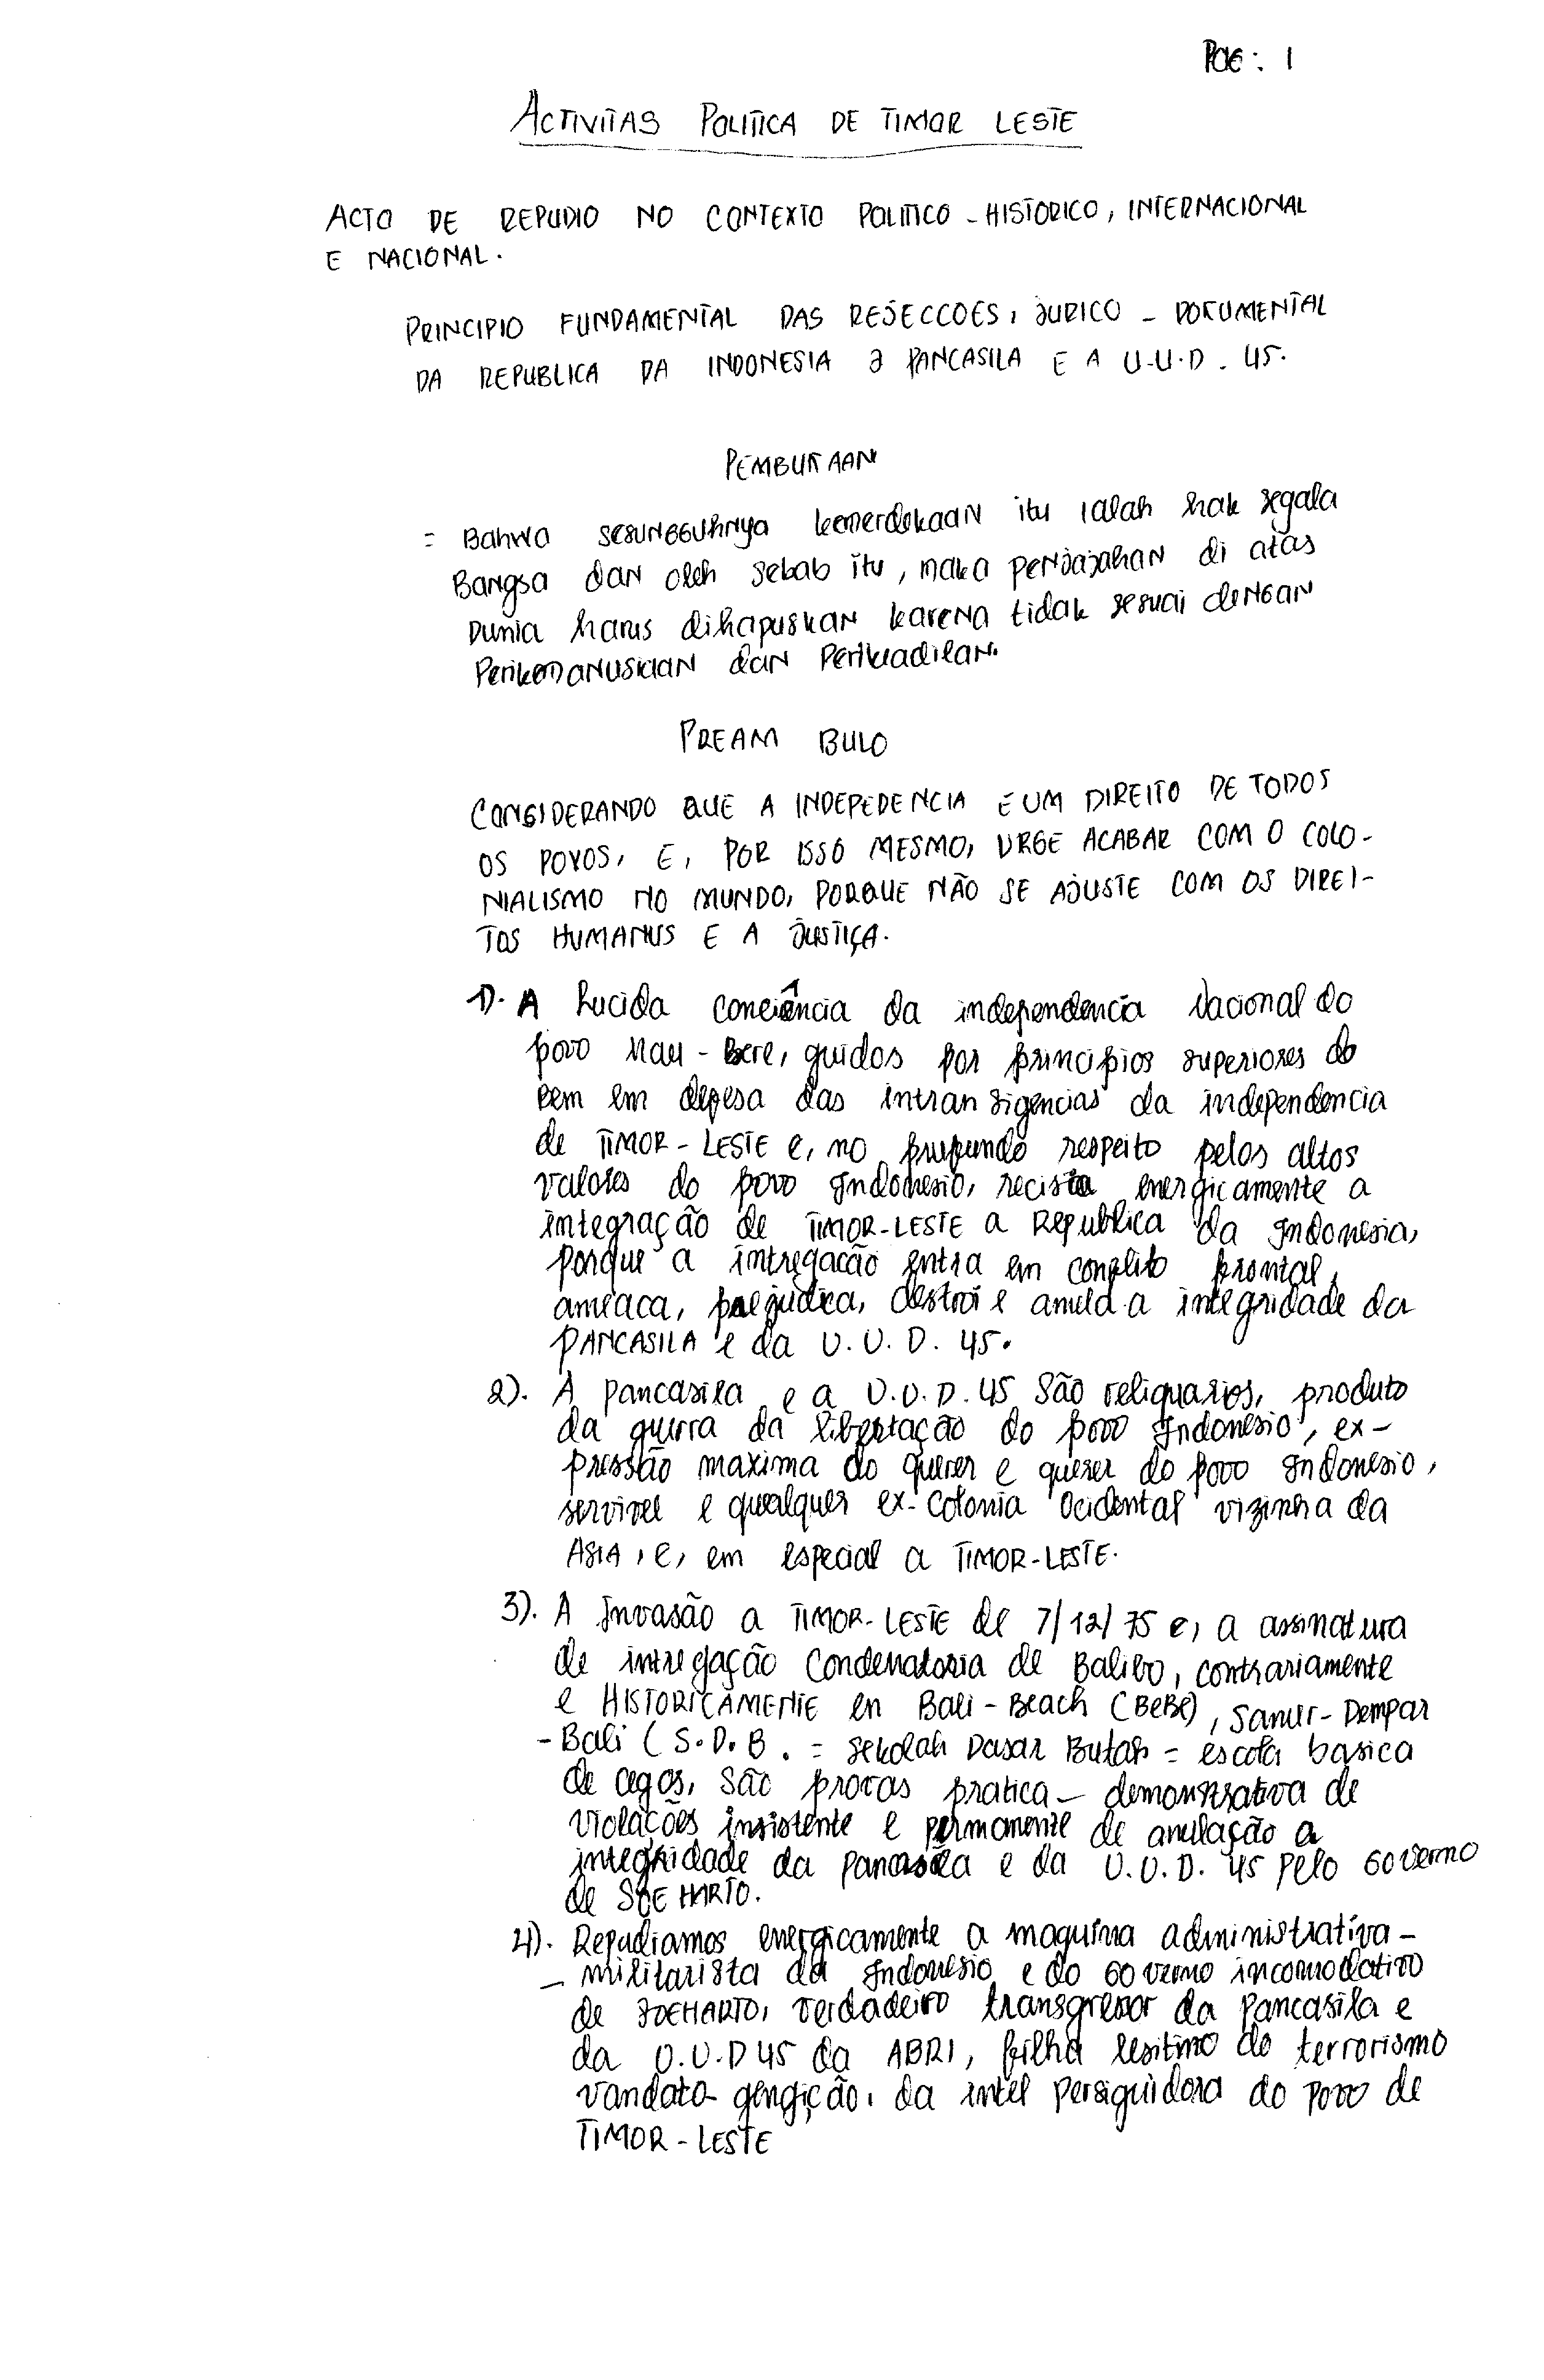 PAG: 1
ACTIVITAS POLITICA DE TIMOR LESTE
ACTO DE REPUDIO NO CONTEXTO POLITICO - HISTORICO, INTERNACIONAL
E NACIONAL.
PRINCIPIO FUNDAMENTAL DAS REJECCOES, JURICO - DOKUMENTAL
DA REPUBLICA DA INDONESIA a PANCASILA E A U.U.D. 45.
PEMBUKAAN
= Bahwa sesungguhnya kemerdekaan itu ialah hak segala
Bangsa dan oleh sebab itu, maka penjajahan di atas
Dunia harus dihapuskan karena tidak sesuai dengan
Perikemanusiaan dan Perikeadilan.
PREAM BULO
CONSIDERANDO QUE A INDEPEDENCIA É UM DIREITO DE TODOS
OS POVOS, E, POR ISSO MESMO, URGE ACABAR COM O COLO-
NIALISMO NO MUNDO, PORQUE NÃO SE AJUSTE COM OS DIREI-
TOS HUMANUS E A JUSTIÇA.
1). A Lucida conciência da independencia Nacional do
povo Mau-Bere, guidos por principios superiores do
Bem em defesa das intransigencias da independencia
de TIMOR-LESTE e, no prufundo respeito pelos altos
valores do povo Indonesio, recista energicamente a
integração de TIMOR-LESTE a Republica da Indonesia,
porque a intregacão entra em conflito frontal,
ameaca, prejudica, destroi e anula a integridade da
PANCASILA e da U.U.D. 45.
2). A Pancasila e a U.U.D. 45 São reliquarios, produto
da guerra da libertação do povo Indonesio, ex-
pressão maxima do querer e querer do povo Indonesio,
servivel e qualquer ex-colonia Ocidental vizinha da
ASIA, e, em especial a TIMOR-LESTE.
3). A Invasão a TIMOR-LESTE de 7/12/75 e, a assinatura
de intregação Condenatoria de Balibo, contrariamente
e HISTORICAMENTE en Bali-Beach (BeBe), Sanur-Dempar
-Bali (S.D.B. = Sekolah Dasar Butah = escola basica
de cegos, São provas pratica - demonstrativa de
violacões insistente e permamente de anulação a
integridade da Pancasila e da U.U.D. 45 Pelo Governo
de SOEHARTO.
4). Repudiamos energicamente a maquina administrativa -
- militarista da Indonesio e do Governo incomodativo
de SOEHARTO, verdadeiro transgressor da Pancasila e
da U.U.D 45 da ABRI, filha lesitimo do terrorismo
vandato- da intel Persiguidora do Povo de
TIMOR-LESTE